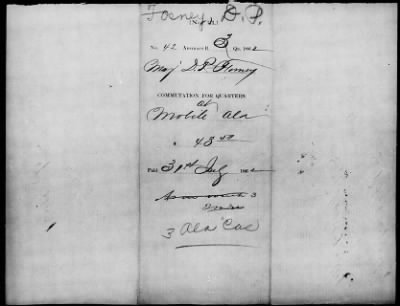 Forney, D. P.
(No. 11.)
No. 42 Abstract B. 3 Qr. 1862
Maj D. P. Forney
COMMUTATION FOR QUARTERS
at
Mobile Ala
$ 48 00
Paid 31st July 1862
3
3 Ala Cav